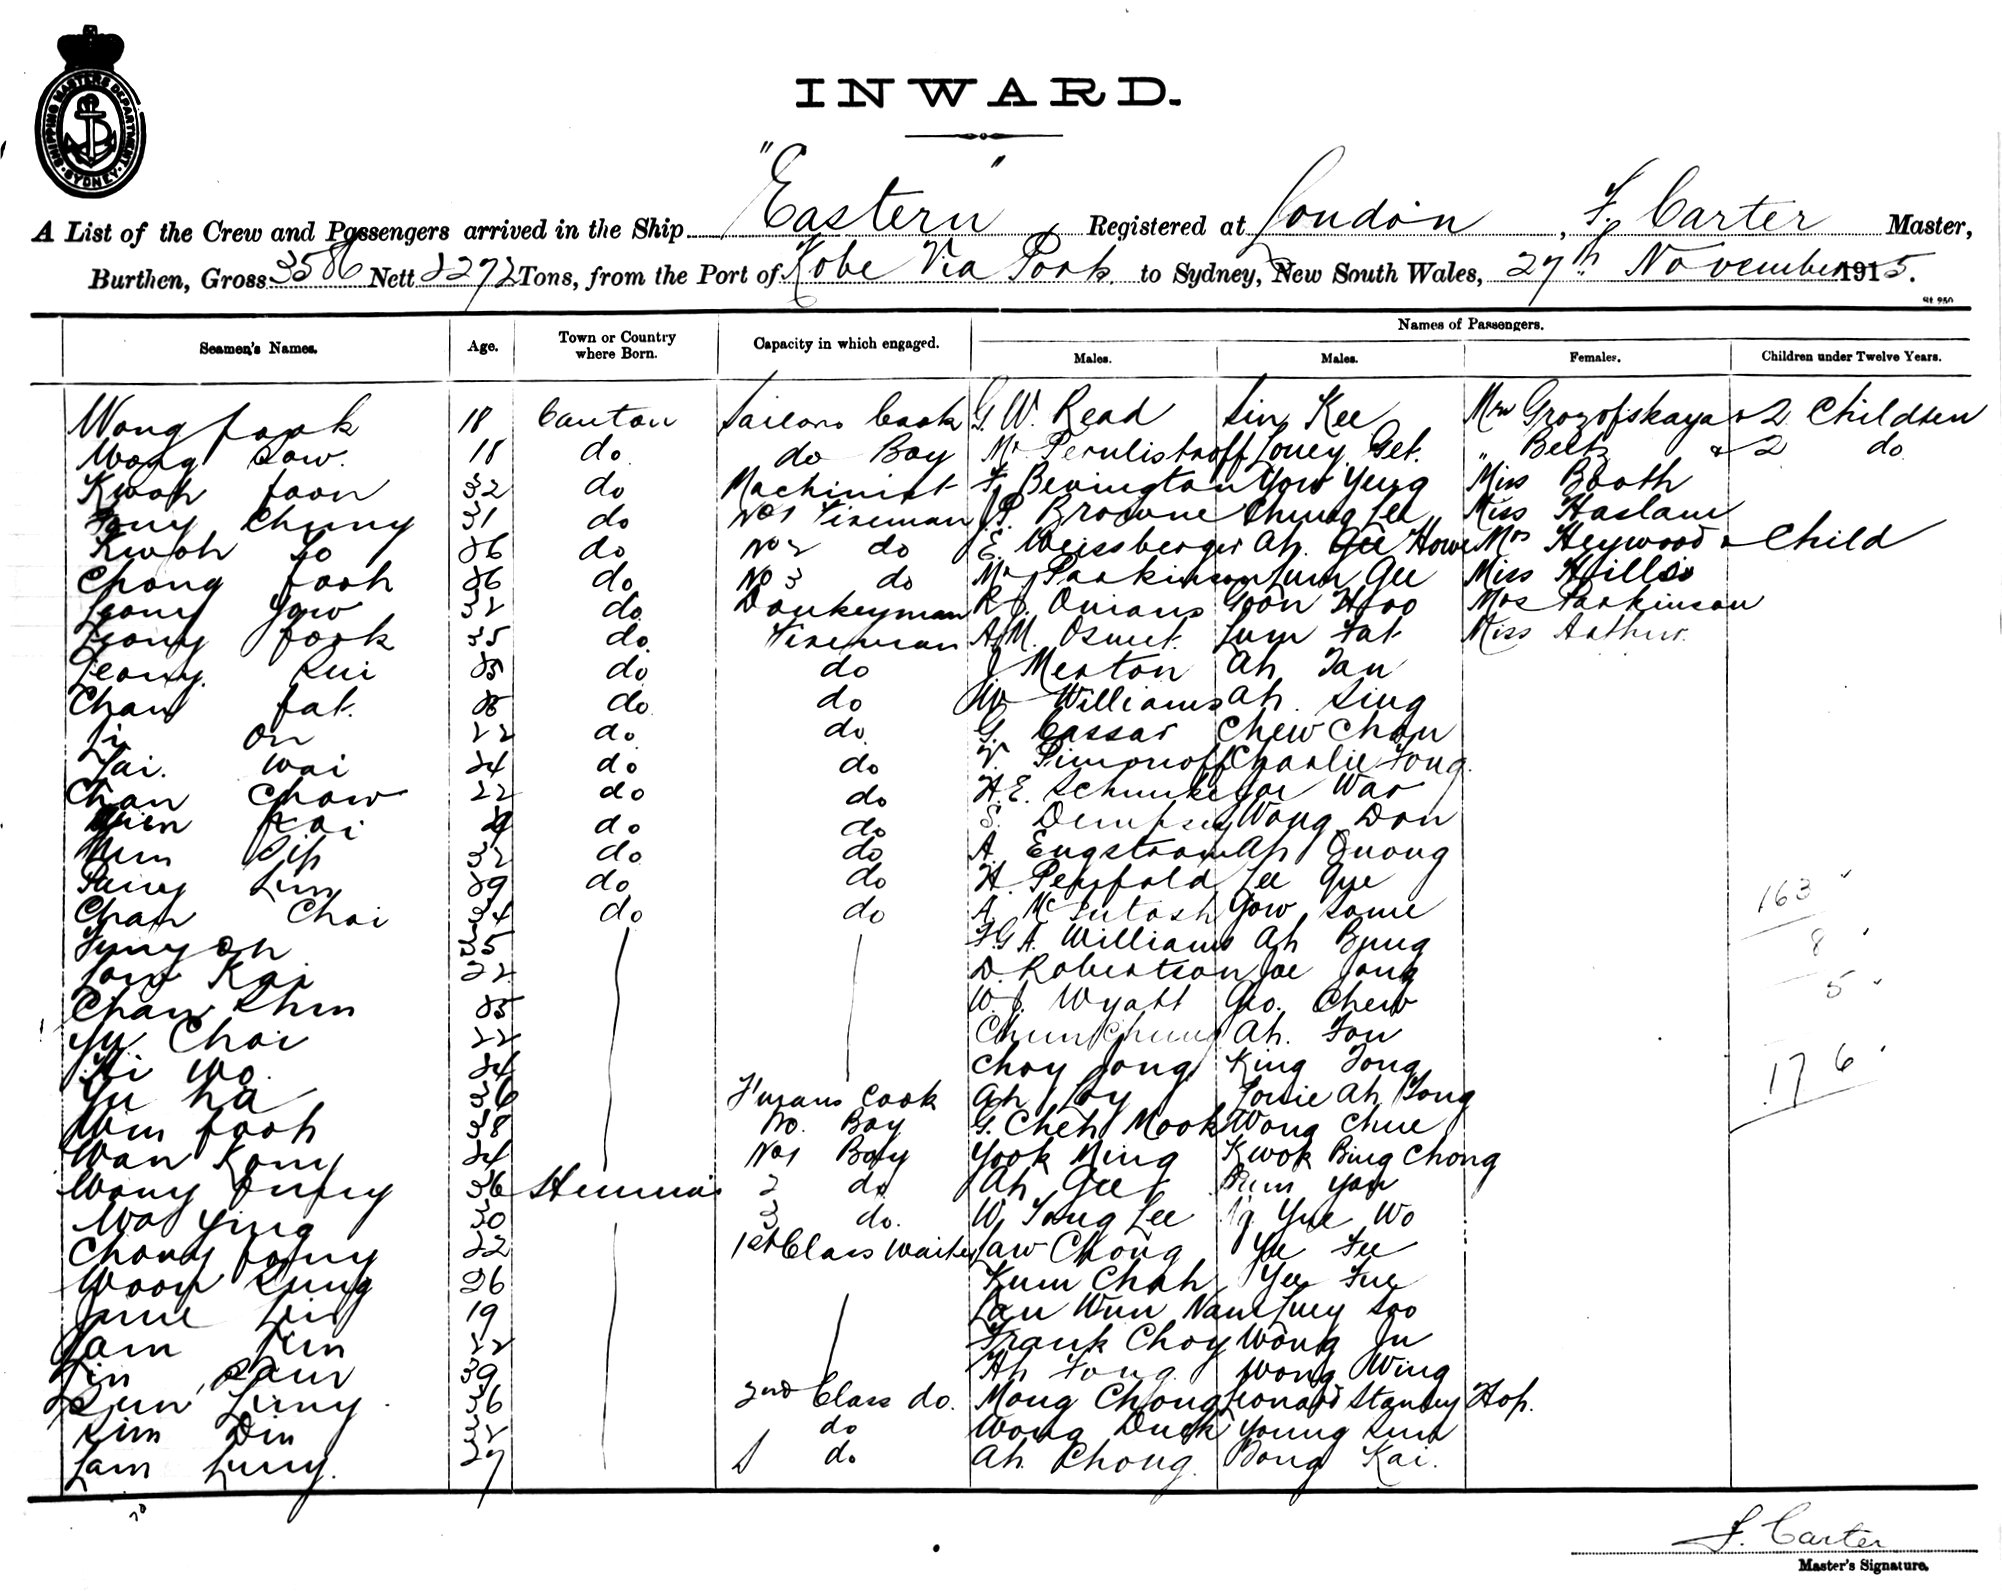 SHIPPING MASTERS DEPARTMENT
SYDNEY
INWARD.
A List of the Crew and Passengers arrived in the Ship "Eastern" Registered at London, F. Carter Master,
Burthen, Gross 3586 Nett 2272 Tons, from the Port of Kobe Via Ports to Sydney, New South Wales, 27th November 1915.
Names of Passengers.
Seamen's Names. Age. Town or Country where Born. Capacity in which engaged. Males. Males. Females. Children under Twelve Years.
Wong Fook 18 Canton Sailors Cook G. W. Read Sin Kee Mrs Grozofskaya & 2 Children
Wong Sow. 18 do do Boy Mr Perulistroff Louey Get. " Beltz & 2 do
Kwoh Foon 32 do Machinist F. Bevington Yow Yeng Miss Booth
Fong Chung 31 do No 1 Fireman J. P. Browne Chung Lee Miss Haslam
Kwoh So 26 do No 2 do E. Weissberger Ah. Howe Mrs Heywood & Child
Chong Fooh 26 do No 3 do Mr Parkinson Lum Gee Miss Hills
Leong Yow 32 do Donkeyman R. J. Onians Goon Hoo Mrs Parkinson
Leong Fook 35 do Fireman A. M. Osmet. Lum Fat Miss Arthur.
Leong. Sui do do J. Merton Ah Tan
Chan Fat. do do Williams Ah. Sing
Li On 22 do do G. Cassar Chew Chan
Tai. Wai 24 do do V. Pimonoff Charlie Fong.
Chan Chow 22 do do H. E. Schunke Joe Wao
Hoi do do S. Dempsey Wong Don
Sip 32 do do A. Engstrom Ah Quong
Lun 29 do do H. Penfold Lee Gye
Chan Choi 34 do do A. McIntosh Gow Some
25 F. G. A. Williams Ah Bung
Low Kai 22 D. Robertson Joe Jong
Chan Shun W. J. Wyatt Geo. Chew
Choi 22 Chun Chung Ah. Fou
Wo. 24 Choy Jong King Tong
Yu Na 36 F'mans Cook Ah Loy Louie Ah Tong
Wm Fooh 38 No. Boy G. Cheh Mook Wong Chue
Wan Kong 24 No 1 Boy Yook Ming Kwok Bing Chong
Wong 36 2 do Ah Gee Bum Yan
Wo Ying 30 3 do. W. Tong Lee Yue Wo
Chong Fong 22 1st Class Waiter Law Chong Yee Fee
Woon Sung 26 Kum Chah Yee Fue
Lui 19 Lau Wun Nam Luey Soo
Lam Kin 22 Frank Choy Wong Ju
Lin Sam 39 Ah Fong Wong Wing
Sun Ling. 36 2nd Class do. Mong Chong Leonard Stanley Hop.
Sim Din do Wong Duck Young Sun
Lam Lung. 27 do Ah Chong. Bong Kai.
163
8
5
176
F. Carter
Master's Signature.